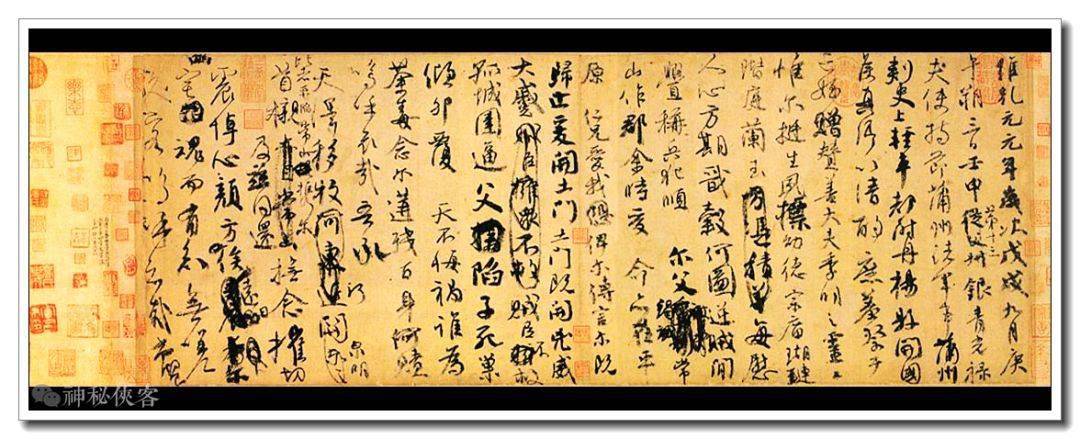 維乾元元年歲次戊戌九月庚
午朔三日壬申第十三叔銀青光祿
夫使持節蒲州諸軍事蒲州
刺史上輕車都尉丹楊縣開國
侯真卿以清酌庶羞祭于
亡姪贈贊善大夫季明之靈曰
惟爾挺生夙標幼德宗廟瑚璉
階庭蘭玉每慰
人心方期戩穀何圖逆賊間
釁稱兵犯順爾父竭誠常
山作郡余時受命亦在平
原仁兄愛我俾爾傳言爾既
歸止爰開土門土門既開凶威
大蹙賊臣不救
孤城圍逼父陷子死巢
傾卵覆天不悔禍誰為
荼毒念爾遘殘百身何贖
嗚呼哀哉吾承
天澤移牧河關泉明
比者再陷常山攜爾
首櫬及茲同還撫念摧切
震悼心顏方俟遠日
卜爾幽宅魂而有知無嗟
久客嗚呼哀哉尚饗
神秘俠客